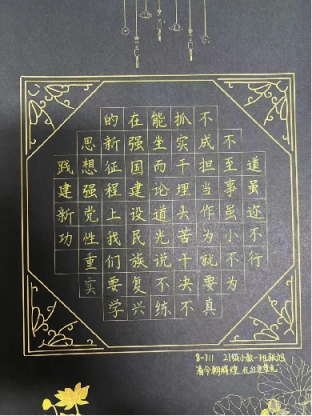 道虽迩不行
不至事虽小不为
不成担当作为就要真
抓实干埋头苦干决不
能坐而论道光说不练
在强国建设民族复兴
的新征程上我们要学
思想强党性重实
践建新功
21级小教一班
看今朝辉煌